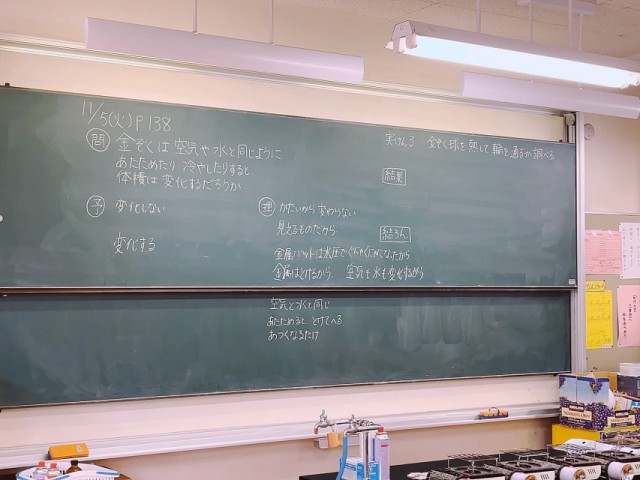 11/5(火) P138
問 金ぞくは空気や水と同じように
あたためたり 冷やしたりすると
体積は変化するだろうか
予 変化しない
変化する
理 かたいから変わらない
見えるものだから
金属バットは水圧でぐにゃぐにゃになったから
金属はとけるから 空気も水も変化するから
空気と水と同じ
あたためると とけてへる
あつくなるだけ
実けん3 金ぞく球を熱して輪を通るか調べる
結果
結ろん